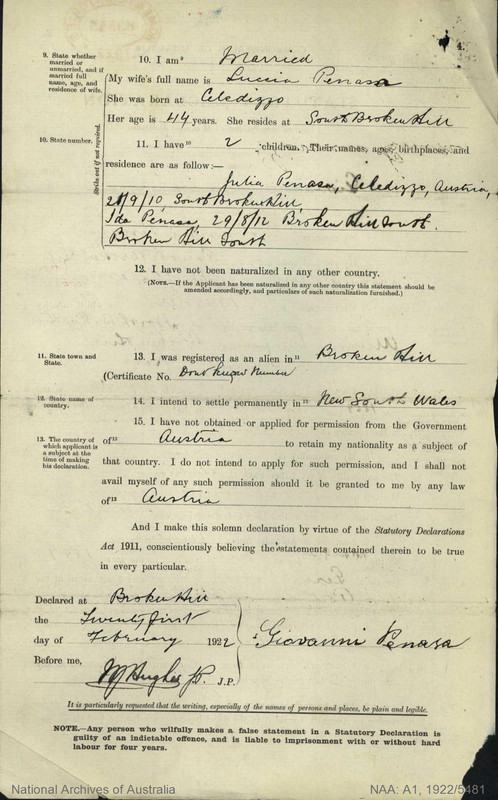 4.
9. State whether
married or
unmarried, and if
married full
name, age, and
residence of wife.
10. I am⁹ Married
(My wife's full name is Luccia Penasa
She was born at Celedizzo
Her age is 44 years. She resides at South Broken Hill
10. State number.
Strike out if not required.
11. I have¹⁰ 2 children. Their names, ages, birthplaces, and
residence are as follow:—
Julia Penasa, Celedizzo, Austria,
21/9/10, South Broken Hill
Ida Penasa, 29/8/12 Broken Hill South.
Broken Hill South
12. I have not been naturalized in any other country.
(NOTE.—If the Applicant has been naturalized in any other country this statement should be
amended accordingly, and particulars of such naturalization furnished.)
11. State town and
State.
13. I was registered as an alien in¹¹ Broken Hill
(Certificate No. Dont know Number
12. State name of
country.
14. I intend to settle permanently in¹² New South Wales
15. I have not obtained or applied for permission from the Government
13. The country of
which applicant is
a subject at the
time of making
his declaration.
of¹³ Austria to retain my nationality as a subject of
that country. I do not intend to apply for such permission, and I shall not
avail myself of any such permission should it be granted to me by any law
of¹³ Austria
And I make this solemn declaration by virtue of the Statutory Declarations
Act 1911, conscientiously believing the statements contained therein to be true
in every particular.
Declared at Broken Hill
the Twenty first
day of February 1922
Giovanni Penasa
Before me,
Hughes JP J.P.
It is particularly requested that the writing, especially of the names of persons and places, be plain and legible.
NOTE.—Any person who wilfully makes a false statement in a Statutory Declaration is
guilty of an indictable offence, and is liable to imprisonment with or without hard
labour for four years.
National Archives of Australia
NAA: A1, 1922/5481